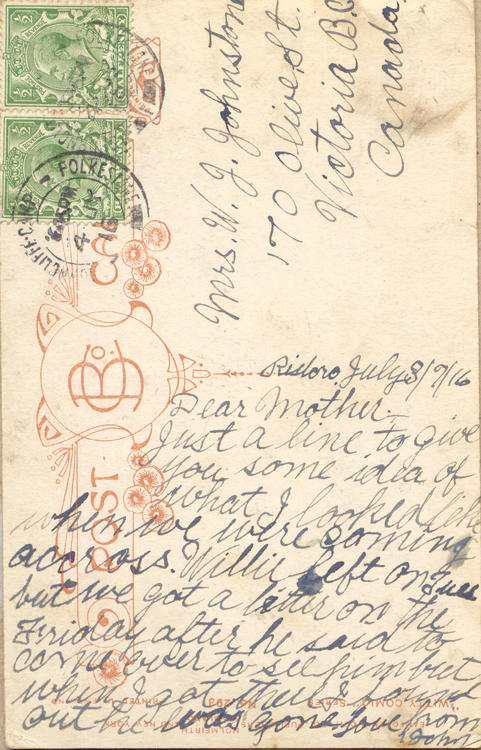 Mrs. W. J. Johnston
170 Olive St.
Victoria B.C.
Canada
POST CARD
B. Co.
FOLKESTONE
4
16
July 8/7/16
Dear Mother_
Just a line to give
you some idea of
what I looked like
when we were coming
accross. Willie left on Tues
but we got a letter on the
Friday after he said to
come over to see him but
when I got there I found
out he was gone love from
John
"WITTY COMIC" SERIES
NO. 293
HOLMFIRTH
NEW YORK
PRINTED IN